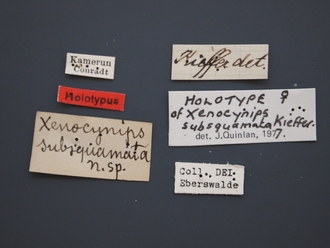 Kamerun
Conradt
Holotypus
Xenocynips
subsquamata
n. sp.
Kieffer det.
HOLOTYPE ♀
of Xenocynips
subsquamata Kieffer.
det. J. Quinlan, 1977.
Coll. DEI
Eberswalde